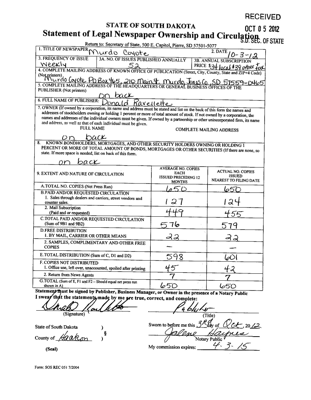 RECEIVED
OCT 05 2012
S.D. SEC. OF STATE
STATE OF SOUTH DAKOTA
Statement of Legal Newspaper Ownership and Circulation
Return to: Secretary of State, 500 E. Capitol, Pierre, SD 57501-5077
1. TITLE OF NEWSPAPER Murdo Coyote
2. DATE 10-3-12
3. FREQUENCY OF ISSUE weekly
3A. NO. OF ISSUES PUBLISHED ANNUALLY 52
3B. ANNUAL SUBSCRIPTION PRICE
4. COMPLETE MAILING ADDRESS OF KNOWN OFFICE OF PUBLICATION (Street, City, County, State and ZIP+4 Code)
(Not printers) Murdo Coyote, PO Box 465, Murdo, Jones Co, SD 57559-0465
5. COMPLETE MAILING ADDRESS OF THE HEADQUARTERS OR GENERAL BUSINESS OFFICES OF THE
PUBLISHER (Not printers) on back
6. FULL NAME OF PUBLISHER: Donald Ravellette
7. OWNER (If owned by a corporation, its name and address must be stated and list on the back of this form the names and
addresses of stockholders owning or holding 1 percent or more of total amount of stock. If not owned by a corporation, the
names and addresses of the individual owners must be given. If owned by a partnership or other unincorporated firm, its name
and address, as well as that of each individual must be given.
FULL NAME COMPLETE MAILING ADDRESS
on back
8. KNOWN BONDHOLDERS, MORTGAGEES, AND OTHER SECURITY HOLDERS OWNING OR HOLDING 1
PERCENT OR MORE OF TOTAL AMOUNT OF BONDS, MORTGAGES OR OTHER SECURITIES (If there are none, so
state. If more space is needed, list on back of this form.
on back
9. EXTENT AND NATURE OF CIRCULATION
AVERAGE NO. COPIES EACH ISSUED PRECEDING 12 MONTHS
ACTUAL NO. COPIES ISSUED NEAREST TO FILING DATE
A. TOTAL NO. COPIES (Net Press Run) 650 650
B. PAID AND/OR REQUESTED CIRCULATION
1. Sales through dealers and carriers, street vendors and counter sales 127 124
2. Mail Subscription (Paid and/or requested) 449 455
C. TOTAL PAID AND/OR REQUESTED CIRCULATION (Sum of 9B1 and 9B2) 576 579
D. FREE DISTRIBUTION
1. BY MAIL, CARRIER OR OTHER MEANS 22 22
2. SAMPLES, COMPLIMENTARY AND OTHER FREE COPIES
E. TOTAL DISTRIBUTION (Sum of C, D1 and D2) 598 601
F. COPIES NOT DISTRIBUTED
1. Office use, left over, unaccounted, spoiled after printing 45 42
2. Return from News Agents 7 7
G. TOTAL (Sum of E, F1 and F2 - Should equal net press run shown in A) 650 650
Statement must be signed by Publisher, Business Manager, or Owner in the presence of a Notary Public
I swear that the statements made by me are true, correct, and complete:
Publisher
(Signature) (Title)
State of South Dakota )
§
County of Haakon )
(Seal)
Sworn to before me this 3rd day of Oct, 2012
Notary Public
My commission expires: 4-3-15
Form: SOS REC 051 7/2004